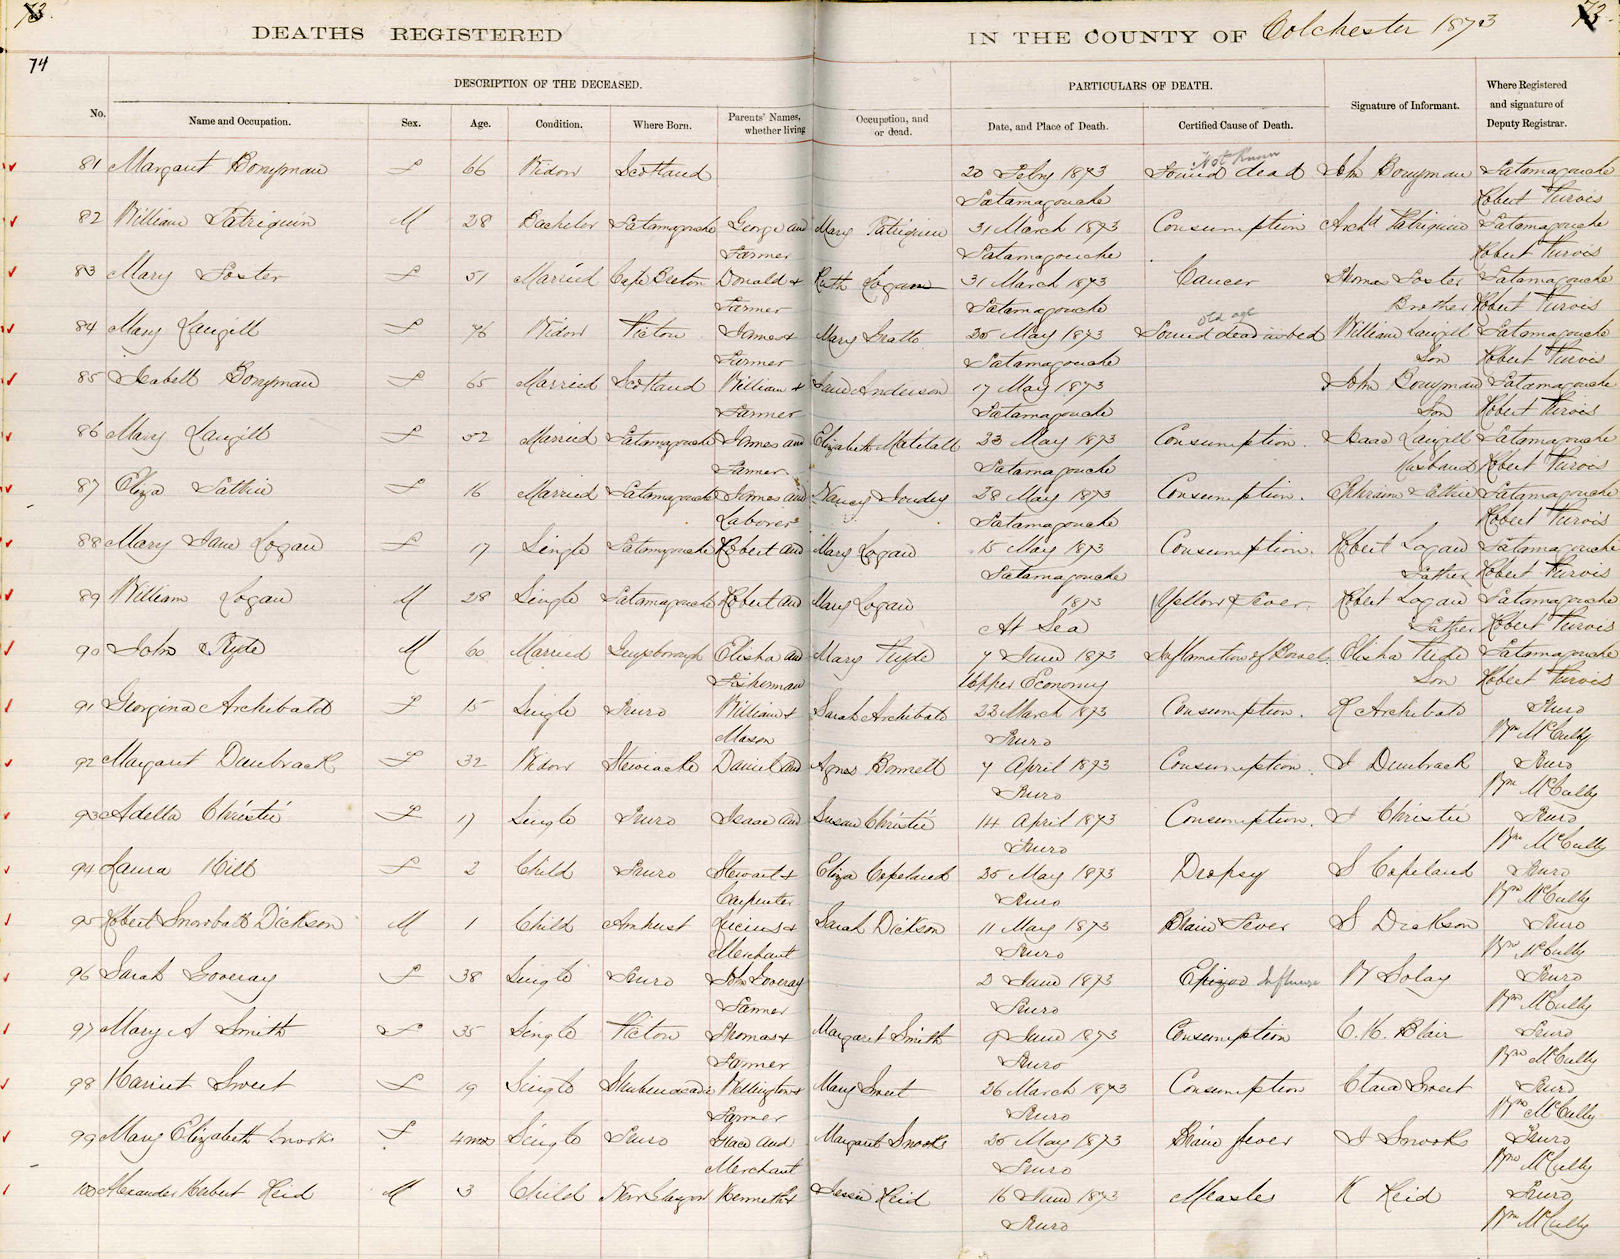 73.
DEATHS REGISTERED
IN THE COUNTY OF Colchester 1873
73.
74
DESCRIPTION OF THE DECEASED.
PARTICULARS OF DEATH.
Where Registered and signature of Deputy Registrar.
No. Name and Occupation. Sex. Age. Condition. Where Born. Parents' Names, whether living Occupation, and or dead. Date, and Place of Death. Certified Cause of Death. Signature of Informant.
Not Known
81 Margaret Bonyman F 66 Widow Scotland 20 Feby 1873 Found dead John Bonyman Tatamagouche
Tatamagouche Robert Purvis
82 William Patriquin M 28 Bachelor Tatamagouche George and Mary Patriquin 31 March 1873 Consumption Archd Patriquin Tatamagouche
Farmer Tatamagouche Robert Purvis
83 Mary Foster F 51 Married Cape Breton Donald & Ruth Logan 31 March 1873 Cancer Thomas Foster Tatamagouche
Farmer Tatamagouche Brother Robert Purvis
old age
84 Mary Langill F 76 Widow Pictou James & Mary Gratto. 20 May 1873 Found dead in bed William Langill Tatamagouche
Farmer Tatamagouche Son Robert Purvis
85 Isabell Bonyman F 65 Married Scotland William & Jane Anderson 17 May 1873 John Bonyman Tatamagouche
Farmer Tatamagouche Son Robert Purvis
86 Mary Langill F 52 Married Tatamagouche James and Elizabeth 23 May 1873 Consumption. Isaac Langill Tatamagouche
Farmer. Tatamagouche Husband Robert Purvis
87 Eliza F 16 Married Tatamagouche James and Nancy 28 May 1873 Consumption. Ephraim Tatamagouche
Laborer Tatamagouche Robert Purvis
88 Mary Jane Logan F 17 Single Tatamagouche Robert and Mary Logan 15 May 1873 Consumption. Robert Logan Tatamagouche
Tatamagouche Father Robert Purvis
89 William Logan M 28 Single Tatamagouche Robert and Mary Logan 1873 Yellow Fever. Robert Logan Tatamagouche
At Sea Father Robert Purvis
90 John Pryde M 60 Married Guysborough Elisha and Mary Pryde 7 June 1873 Inflamation of Bowel. Elisha Pryde Tatamagouche
Fisherman Upper Economy Son Robert Purvis
91 Georgina Archibald F 15 Single Truro William & Sarah Archibald 23 March 1873 Consumption. R Archibald Truro
Mason Truro Wm McCully
92 Margaret Dunbrack F 32 Widow Stewiacke Daniel and Agnes Bonnell 7 April 1873 Consumption. J Dunbrack Truro
Truro Wm McCully
93 Adella Christie F 17 Single Truro Isaac and Susan Christie 14 April 1873 Consumption. I Christie Truro
Truro Wm McCully
94 Laura Hill F 2 Child Truro Stewart & Eliza Copeland 25 May 1873 Dropsy S Copeland Truro
Carpenter Truro Wm McCully
95 Robert Snowball Dickson M 1 Child Amherst Lucius & Sarah Dickson 11 May 1873 Brain Fever S Dickson Truro
Merchant Truro Wm McCully
96 Sarah Goveray F 38 Single Truro John Goveray 2 June 1873 Epizoo Influenza W Solay Truro
Farmer Truro Wm McCully
97 Mary A Smith F 35 Single Pictou Thomas & Margaret Smith 9 June 1873 Consumption C. H. Blair Truro
Farmer Truro Wm McCully
98 Harriet Sweet F 19 Single Shubenacadie Wellington & Mary Sweet 26 March 1873 Consumption Clara Sweet Truro
Farmer Truro Wm McCully
99 Mary Elizabeth Snook F 4 mos Single Truro Isaac and Margaret Snooks 20 May 1873 Brain fever I Snook Truro
Merchant Truro Wm McCully
100 Alexander Herbert Reid M 3 Child New Glasgow Kenneth & Jessie Reid 16 June 1873 Measles K Reid Truro
Truro Wm McCully